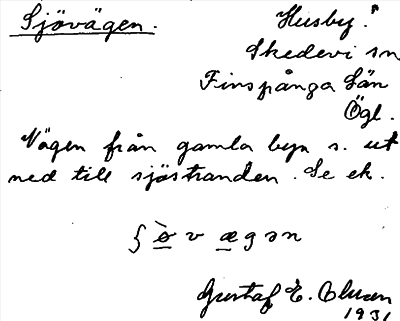 Sjövägen. Husby.
Skedevi sn
Finspånga län
Ögl.
Vägen från gamla byn s. ut
ned till sjöstranden. Se ek.
ʃø̀vægən
Gustaf E.
1931